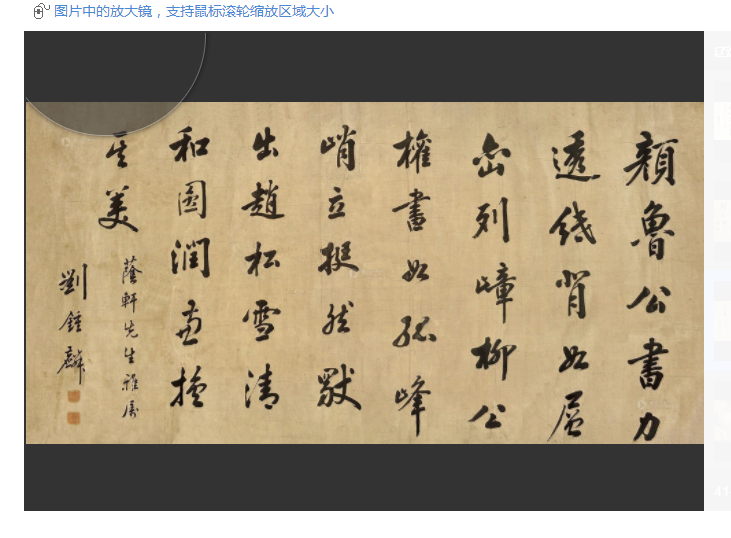 图片中的放大镜，支持鼠标滚轮缩放区域大小
顏魯公書力
透背如層
峦列嶂柳公
權書如孤峰
峭立挺然
出趙松雪清
和圓潤兼擅
美
蔭軒先生雅屬
劉鍾麟